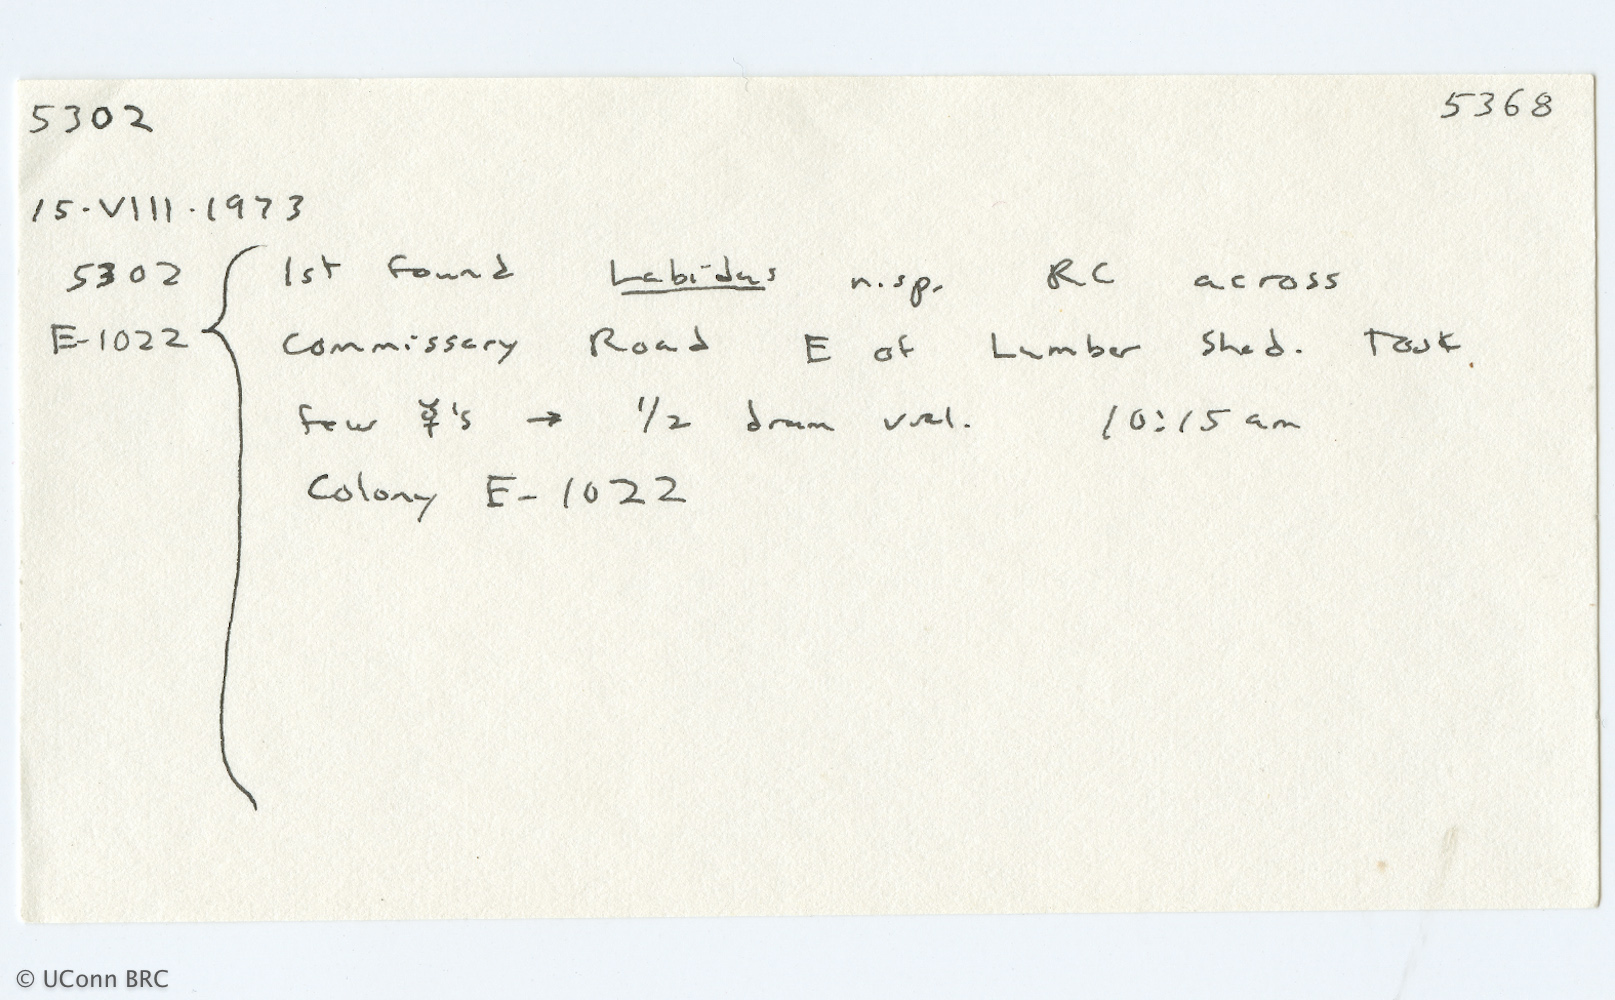 5302 5368
15.VIII.1973
5302 1st found Labidus n.sp. RC across
E-1022 Commissary Road E of Lumber Shed. Took
few ☿'s → 1/2 dram vial. 10:15 am
Colony E-1022
© UConn BRC